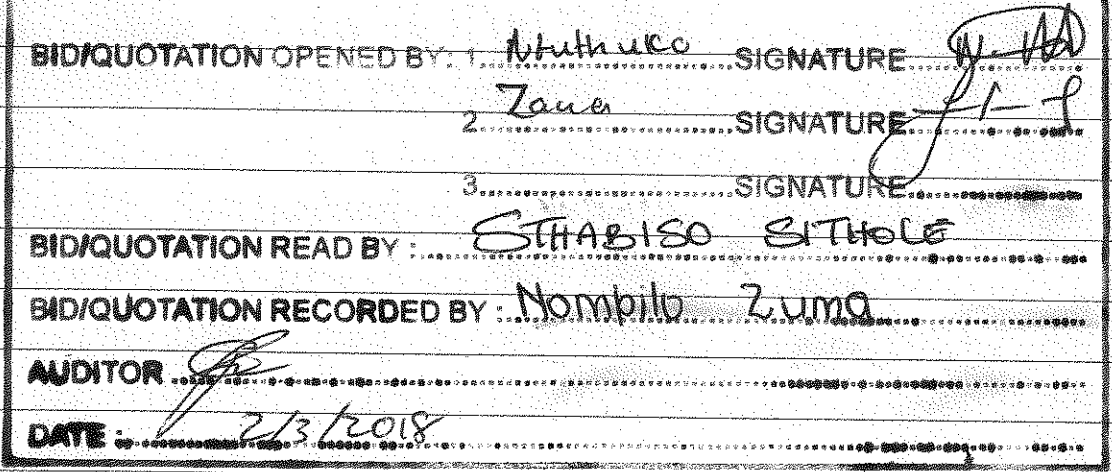 BID/QUOTATION OPENED BY: 1. Ntuthuko SIGNATURE
2. SIGNATURE
3. SIGNATURE
BID/QUOTATION READ BY: STHABISO SITHOLE
BID/QUOTATION RECORDED BY: Nompilo Zuma
AUDITOR
DATE: 2/3/2018